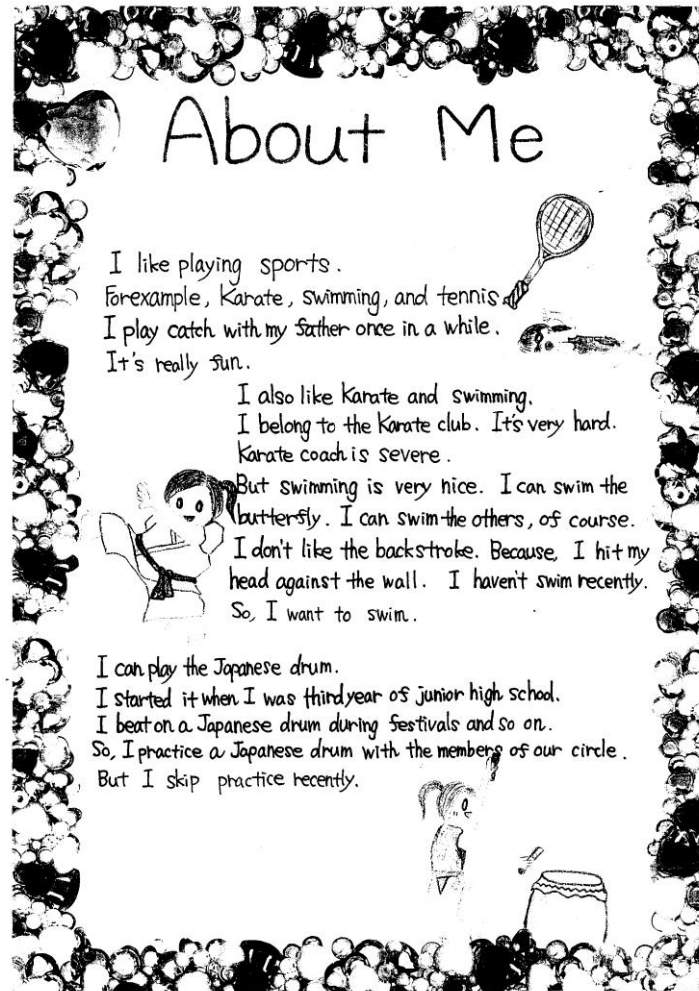 About Me
I like playing sports.
Forexample, Karate, swimming, and tennis
I play catch with my father once in a while.
It's really fun.
I also like Karate and swimming.
I belong to the Karate club. It's very hard.
Karate coach is severe.
But swimming is very nice. I can swim the
butterfly. I can swim the others, of course.
I don't like the backstroke. Because, I hit my
head against the wall. I haven't swim recently.
So, I want to swim.
I can play the Japanese drum.
I started it when I was third year of junior high school.
I beat on a Japanese drum during festivals and so on.
So, I practice a Japanese drum with the members of our circle.
But I skip practice recently.